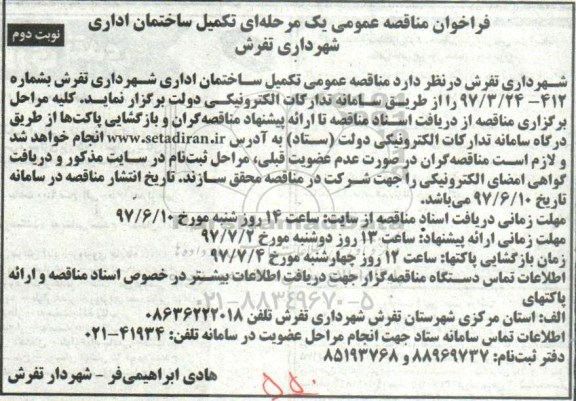 فراخوان مناقصه عمومی یک مرحله‌ای تکمیل ساختمان اداری
شهرداری تفرش
نوبت دوم
شهرداری تفرش درنظر دارد مناقصه عمومی تکمیل ساختمان اداری شهرداری تفرش بشماره
۴۱۲- ۹۷/۳/۲۴ را از طریق سامانه تدارکات الکترونیکی دولت برگزار نماید. کلیه مراحل
برگزاری مناقصه از دریافت اسناد مناقصه تا ارائه پیشنهاد مناقصه‌گران و بازگشایی پاکت‌ها از طریق
درگاه سامانه تدارکات الکترونیکی دولت (ستاد) به آدرس www.setadiran.ir انجام خواهد شد
و لازم است مناقصه‌گران در صورت عدم عضویت قبلی، مراحل ثبت‌نام در سایت مذکور و دریافت
گواهی امضای الکترونیکی را جهت شرکت در مناقصه محقق سازند. تاریخ انتشار مناقصه در سامانه
تاریخ ۹۷/۶/۱۰ می‌باشد.
مهلت زمانی دریافت اسناد مناقصه از سایت: ساعت ۱۴ روز شنبه مورخ ۹۷/۶/۱۰
مهلت زمانی ارائه پیشنهاد: ساعت ۱۳ روز دوشنبه مورخ ۹۷/۷/۲
زمان بازگشایی پاکتها: ساعت ۱۲ روز چهارشنبه مورخ ۹۷/۷/۴
اطلاعات تماس دستگاه مناقصه‌گزار جهت دریافت اطلاعات بیشتر در خصوص اسناد مناقصه و ارائه
پاکتهای
الف: استان مرکزی شهرستان تفرش شهرداری تفرش تلفن ۰۸۶۳۶۲۲۲۰۱۸
اطلاعات تماس سامانه ستاد جهت انجام مراحل عضویت در سامانه تلفن: ۴۱۹۳۴-۰۲۱
دفتر ثبت‌نام: ۸۸۹۶۹۷۳۷ و ۸۵۱۹۳۷۶۸
هادی ابراهیمی‌فر - شهردار تفرش
۰۲۱-۸۸۳۴۹۶۷۰-۵